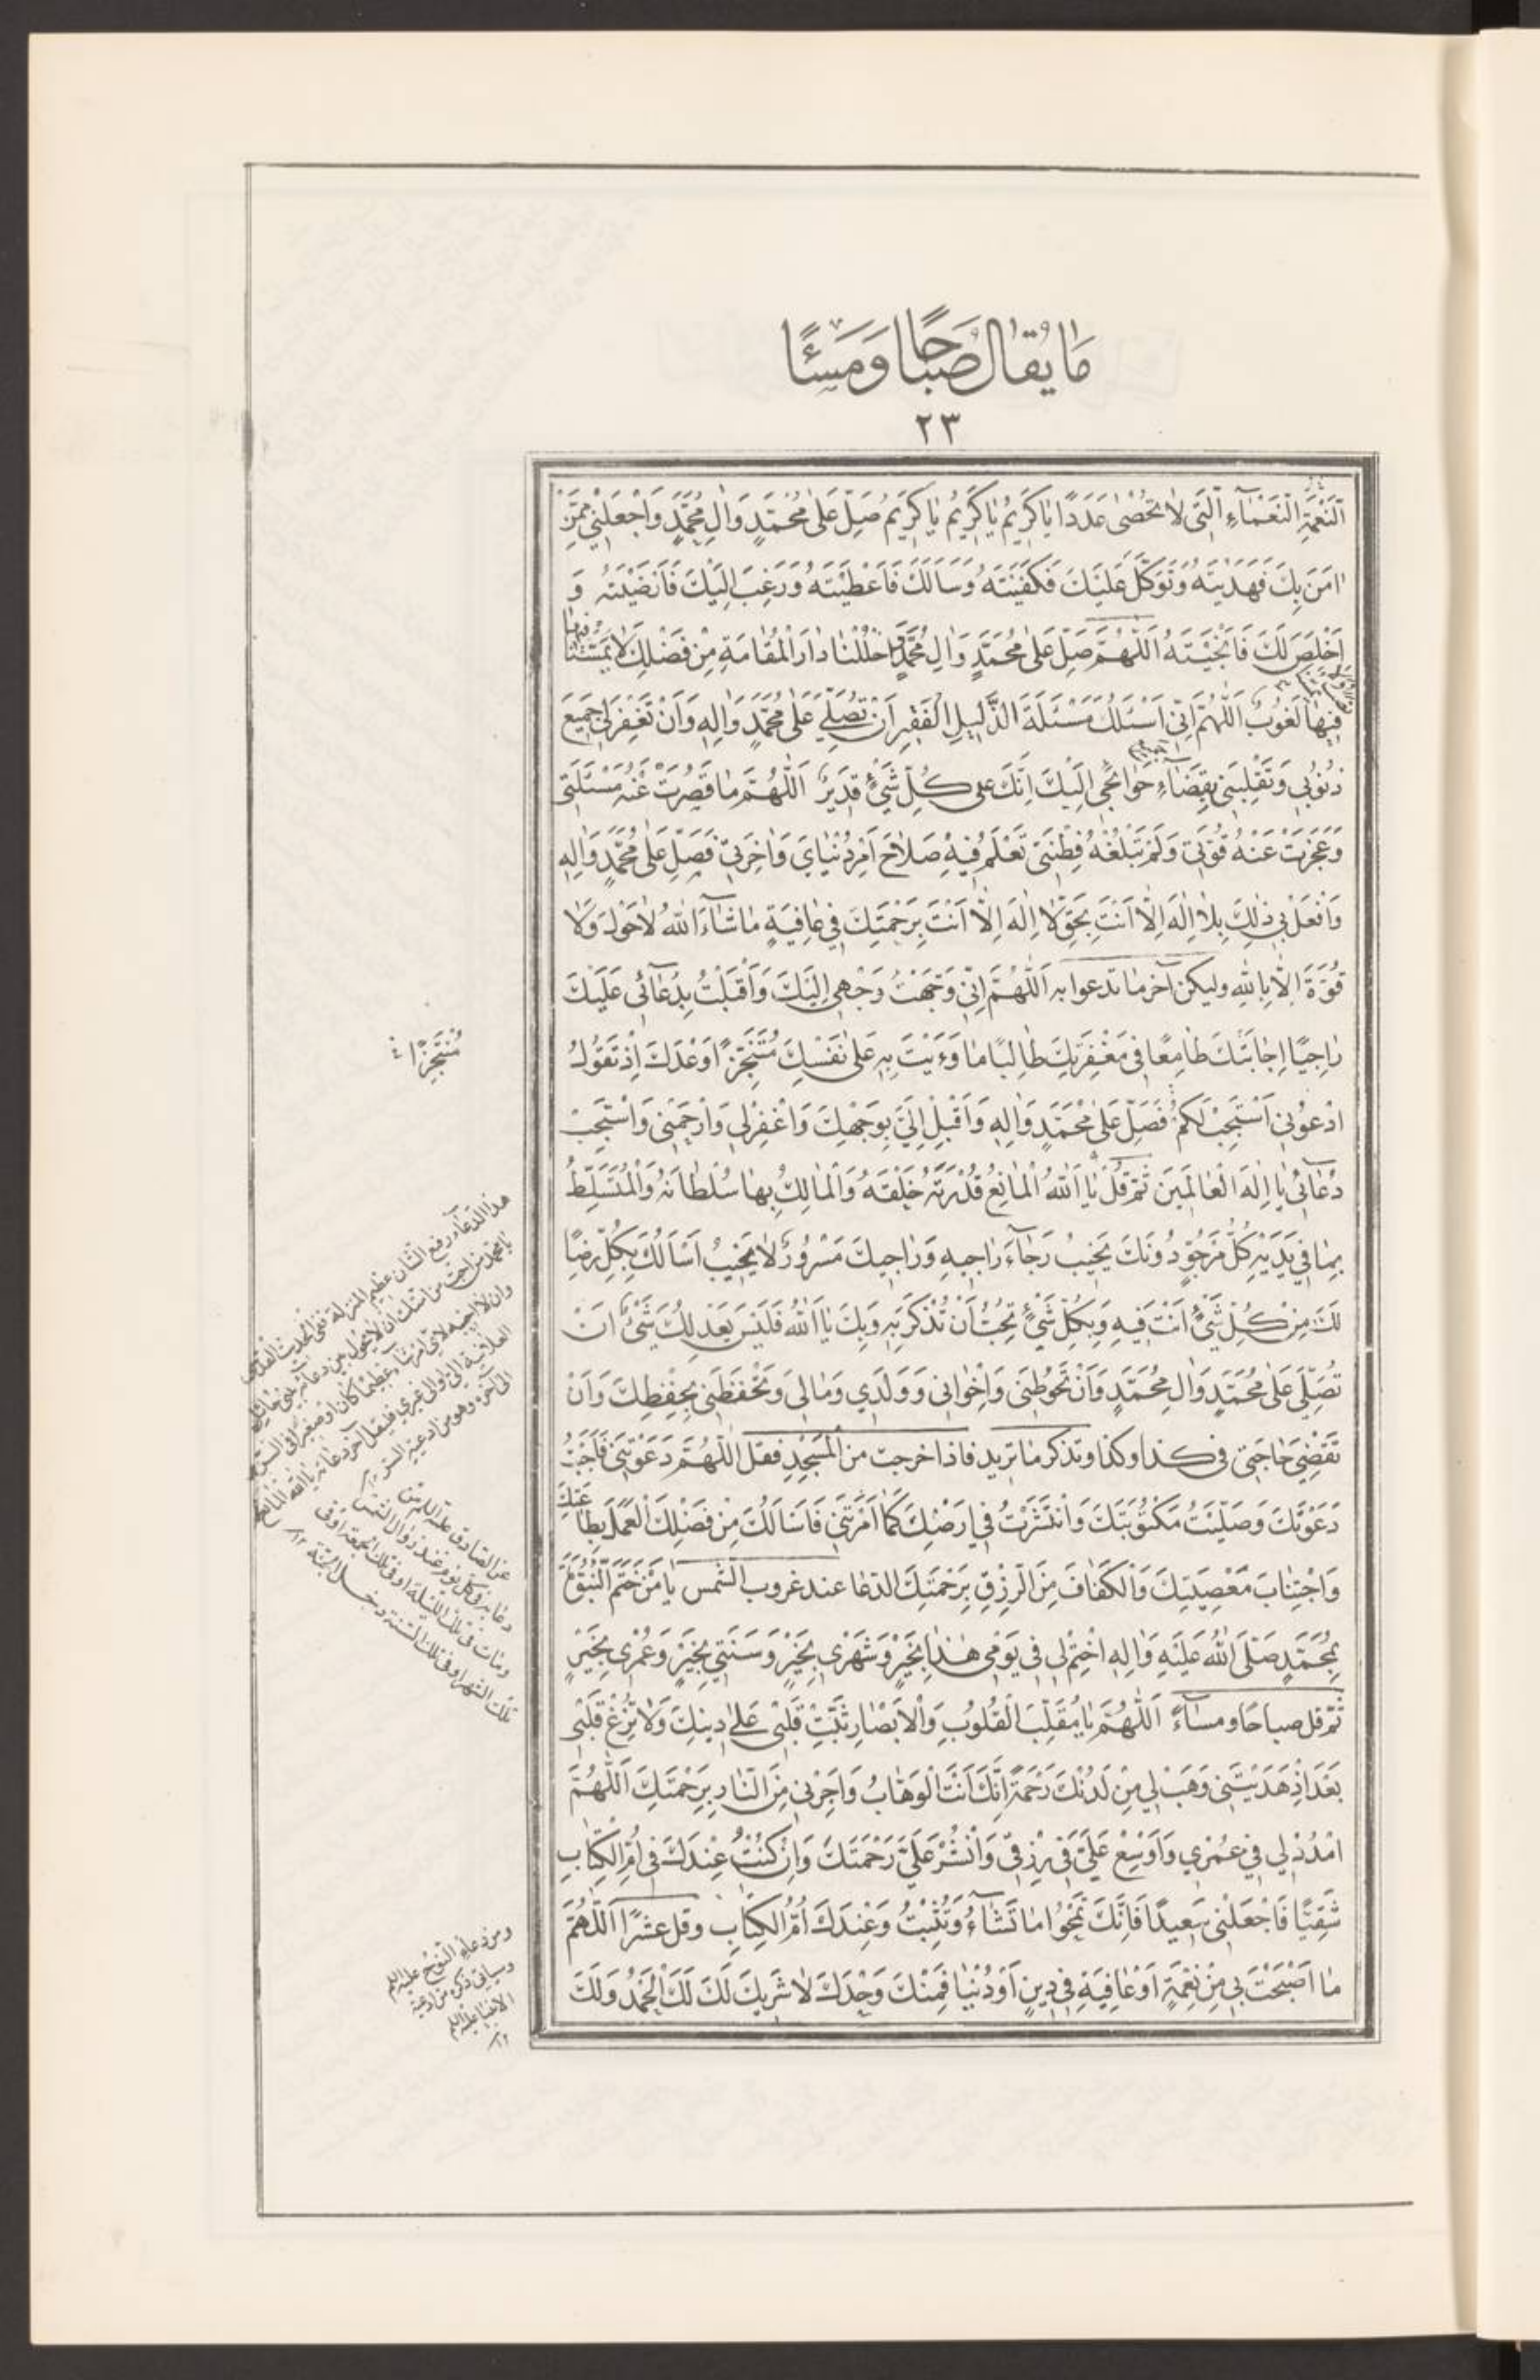 مَا يُقَالُ صَبَاحًا وَمَسَاءً
٢٣
اَلنِّعْمَةِ النَّعْمَاءِ الَّتِي لَا تُحْصَى عَدَدًا يَا كَرِيمُ يَا كَرِيمُ يَا كَرِيمُ صَلِّ عَلَى مُحَمَّدٍ وَآلِ مُحَمَّدٍ وَاجْعَلْنِي مِمَّنْ
اٰمَنَ بِكَ فَهَدَيْتَهُ وَتَوَكَّلَ عَلَيْكَ فَكَفَيْتَهُ وَسَأَلَكَ فَأَعْطَيْتَهُ وَرَغِبَ إِلَيْكَ فَأَرْضَيْتَهُ وَ
اَخْلَصَ لَكَ فَأَنْجَيْتَهُ اَللّٰهُمَّ صَلِّ عَلَى مُحَمَّدٍ وَآلِ مُحَمَّدٍ وَاحْلُلْنَا دَارَ الْمُقَامَةِ مِنْ فَضْلِكَ لَا يَمَسُّنَا
فِيهَا لُغُوبٌ اَللّٰهُمَّ إِنِّي أَسْئَلُكَ مَسْئَلَةَ الذَّلِيلِ الْفَقِيرِ أَنْ تُصَلِّيَ عَلَى مُحَمَّدٍ وَآلِهِ وَأَنْ تَغْفِرَ لِي جَمِيعَ
ذُنُوبِي وَتَقْلِبَنِي بِقَضَاءِ حَوَائِجِي إِلَيْكَ إِنَّكَ عَلَى كُلِّ شَيْءٍ قَدِيرٌ اَللّٰهُمَّ مَا قَصُرَتْ عَنْهُ مَسْئَلَتِي
وَعَجَزَتْ عَنْهُ قُوَّتِي وَلَمْ تَبْلُغْهُ فِطْنَتِي تَعْلَمُ فِيهِ صَلَاحَ أَمْرِ دُنْيَايَ وَآخِرَتِي فَصَلِّ عَلَى مُحَمَّدٍ وَآلِهِ
وَافْعَلْ بِي ذٰلِكَ بِلَا إِلٰهَ إِلَّا أَنْتَ بِحَقِّ لَا إِلٰهَ إِلَّا أَنْتَ بِرَحْمَتِكَ فِي عَافِيَةٍ مَا شَاءَ اللهُ لَا حَوْلَ وَلَا
قُوَّةَ إِلَّا بِاللهِ وليكن آخر ما تدعوا به اَللّٰهُمَّ إِنِّي وَجَّهْتُ وَجْهِي إِلَيْكَ وَأَقْبَلْتُ بِدُعَائِي عَلَيْكَ
رَاجِيًا إِجَابَتَكَ طَامِعًا فِي مَغْفِرَتِكَ طَالِبًا مَا وَأَيْتَ بِهِ عَلَى نَفْسِكَ مُتَنَجِّزًا وَعْدَكَ إِذْ تَقُولُ
ادْعُونِي أَسْتَجِبْ لَكُمْ فَصَلِّ عَلَى مُحَمَّدٍ وَآلِهِ وَأَقْبِلْ إِلَيَّ بِوَجْهِكَ وَاغْفِرْ لِي وَارْحَمْنِي وَاسْتَجِبْ
دُعَائِي يَا إِلٰهَ الْعَالَمِينَ ثُمَّ قُلْ يَا اَللهُ الْمَانِعُ قُدْرَتَهُ خَلْقَهُ وَالْمَالِكُ بِهَا سُلْطَانَهُ وَالْمُتَسَلِّطُ
بِمَا فِي يَدَيْهِ كُلُّ مَرْجُوٍّ دُونَكَ يَخِيبُ رَجَاءَ رَاجِيهِ وَرَاجِيكَ مَسْرُورٌ لَا يَخِيبُ أَسْأَلُكَ بِكُلِّ رِضًا
لَكَ مِنْ كُلِّ شَيْءٍ أَنْتَ فِيهِ وَبِكُلِّ شَيْءٍ تُحِبُّ أَنْ تُذْكَرَ بِهِ وَبِكَ يَا اَللهُ فَلَيْسَ يَعْدِلُكَ شَيْءٌ أَنْ
تُصَلِّيَ عَلَى مُحَمَّدٍ وَآلِ مُحَمَّدٍ وَأَنْ تَحُوطَنِي وَإِخْوَانِي وَوَلَدِي وَمَالِي وَتَحْفَظَنِي بِحِفْظِكَ وَأَنْ
تَقْضِيَ حَاجَتِي فِي كذا وكذا وتذكر ما تريد فاذا خرجت من الْمَسْجِدِ فقل اَللّٰهُمَّ دَعَوْتَنِي فَأَجَبْتُ
دَعْوَتَكَ وَصَلَّيْتُ مَكْتُوبَتَكَ وَانْتَشَرْتُ فِي أَرْضِكَ كَمَا أَمَرْتَنِي فَأَسْأَلُكَ مِنْ فَضْلِكَ الْعَمَلَ بِطَاعَتِكَ
وَاجْتِنَابَ مَعْصِيَتِكَ وَالْكَفَافَ مِنَ الرِّزْقِ بِرَحْمَتِكَ الدعا عند غروب الشمس يَا مَنْ خَتَمَ النُّبُوَّةَ
بِمُحَمَّدٍ صَلَّى اللهُ عَلَيْهِ وَآلِهِ اخْتِمْ لِي فِي يَوْمِي هٰذَا بِخَيْرٍ وَشَهْرِي بِخَيْرٍ وَسَنَتِي بِخَيْرٍ وَعُمْرِي بِخَيْرٍ
ثم قل صباحًا ومساءً اَللّٰهُمَّ يَا مُقَلِّبَ الْقُلُوبِ وَالْأَبْصَارِ ثَبِّتْ قَلْبِي عَلَى دِينِكَ وَلَا تُزِغْ قَلْبِي
بَعْدَ إِذْ هَدَيْتَنِي وَهَبْ لِي مِنْ لَدُنْكَ رَحْمَةً إِنَّكَ أَنْتَ الْوَهَّابُ وَأَجِرْنِي مِنَ النَّارِ بِرَحْمَتِكَ اَللّٰهُمَّ
امْدُدْ لِي فِي عُمْرِي وَأَوْسِعْ عَلَيَّ فِي رِزْقِي وَانْشُرْ عَلَيَّ رَحْمَتَكَ وَإِنْ كُنْتُ عِنْدَكَ فِي أُمِّ الْكِتَابِ
شَقِيًّا فَاجْعَلْنِي سَعِيدًا فَإِنَّكَ تَمْحُوا مَا تَشَاءُ وَتُثْبِتُ وَعِنْدَكَ أُمُّ الْكِتَابِ وقل عشرًا اَللّٰهُمَّ
مَا أَصْبَحَتْ بِي مِنْ نِعْمَةٍ أَوْ عَافِيَةٍ فِي دِينٍ أَوْ دُنْيَا فَمِنْكَ وَحْدَكَ لَا شَرِيكَ لَكَ لَكَ الْحَمْدُ وَلَكَ
مُنْتَجِزًا
هذا الدعاء رفيع الشان عظيم المنزلة ففي الحديث القدسي
عن الصادق عليه السلام من
دعا به في كل يوم عند زوال الشمس
ومات في تلك الليلة او في تلك الجمعة او في
تلك الشهر او في تلك السنة دخل الجنة
ومن دعاء النوح عليه السلام
وسياتي ذكره في ادعية
الانبيا عليهم السلام